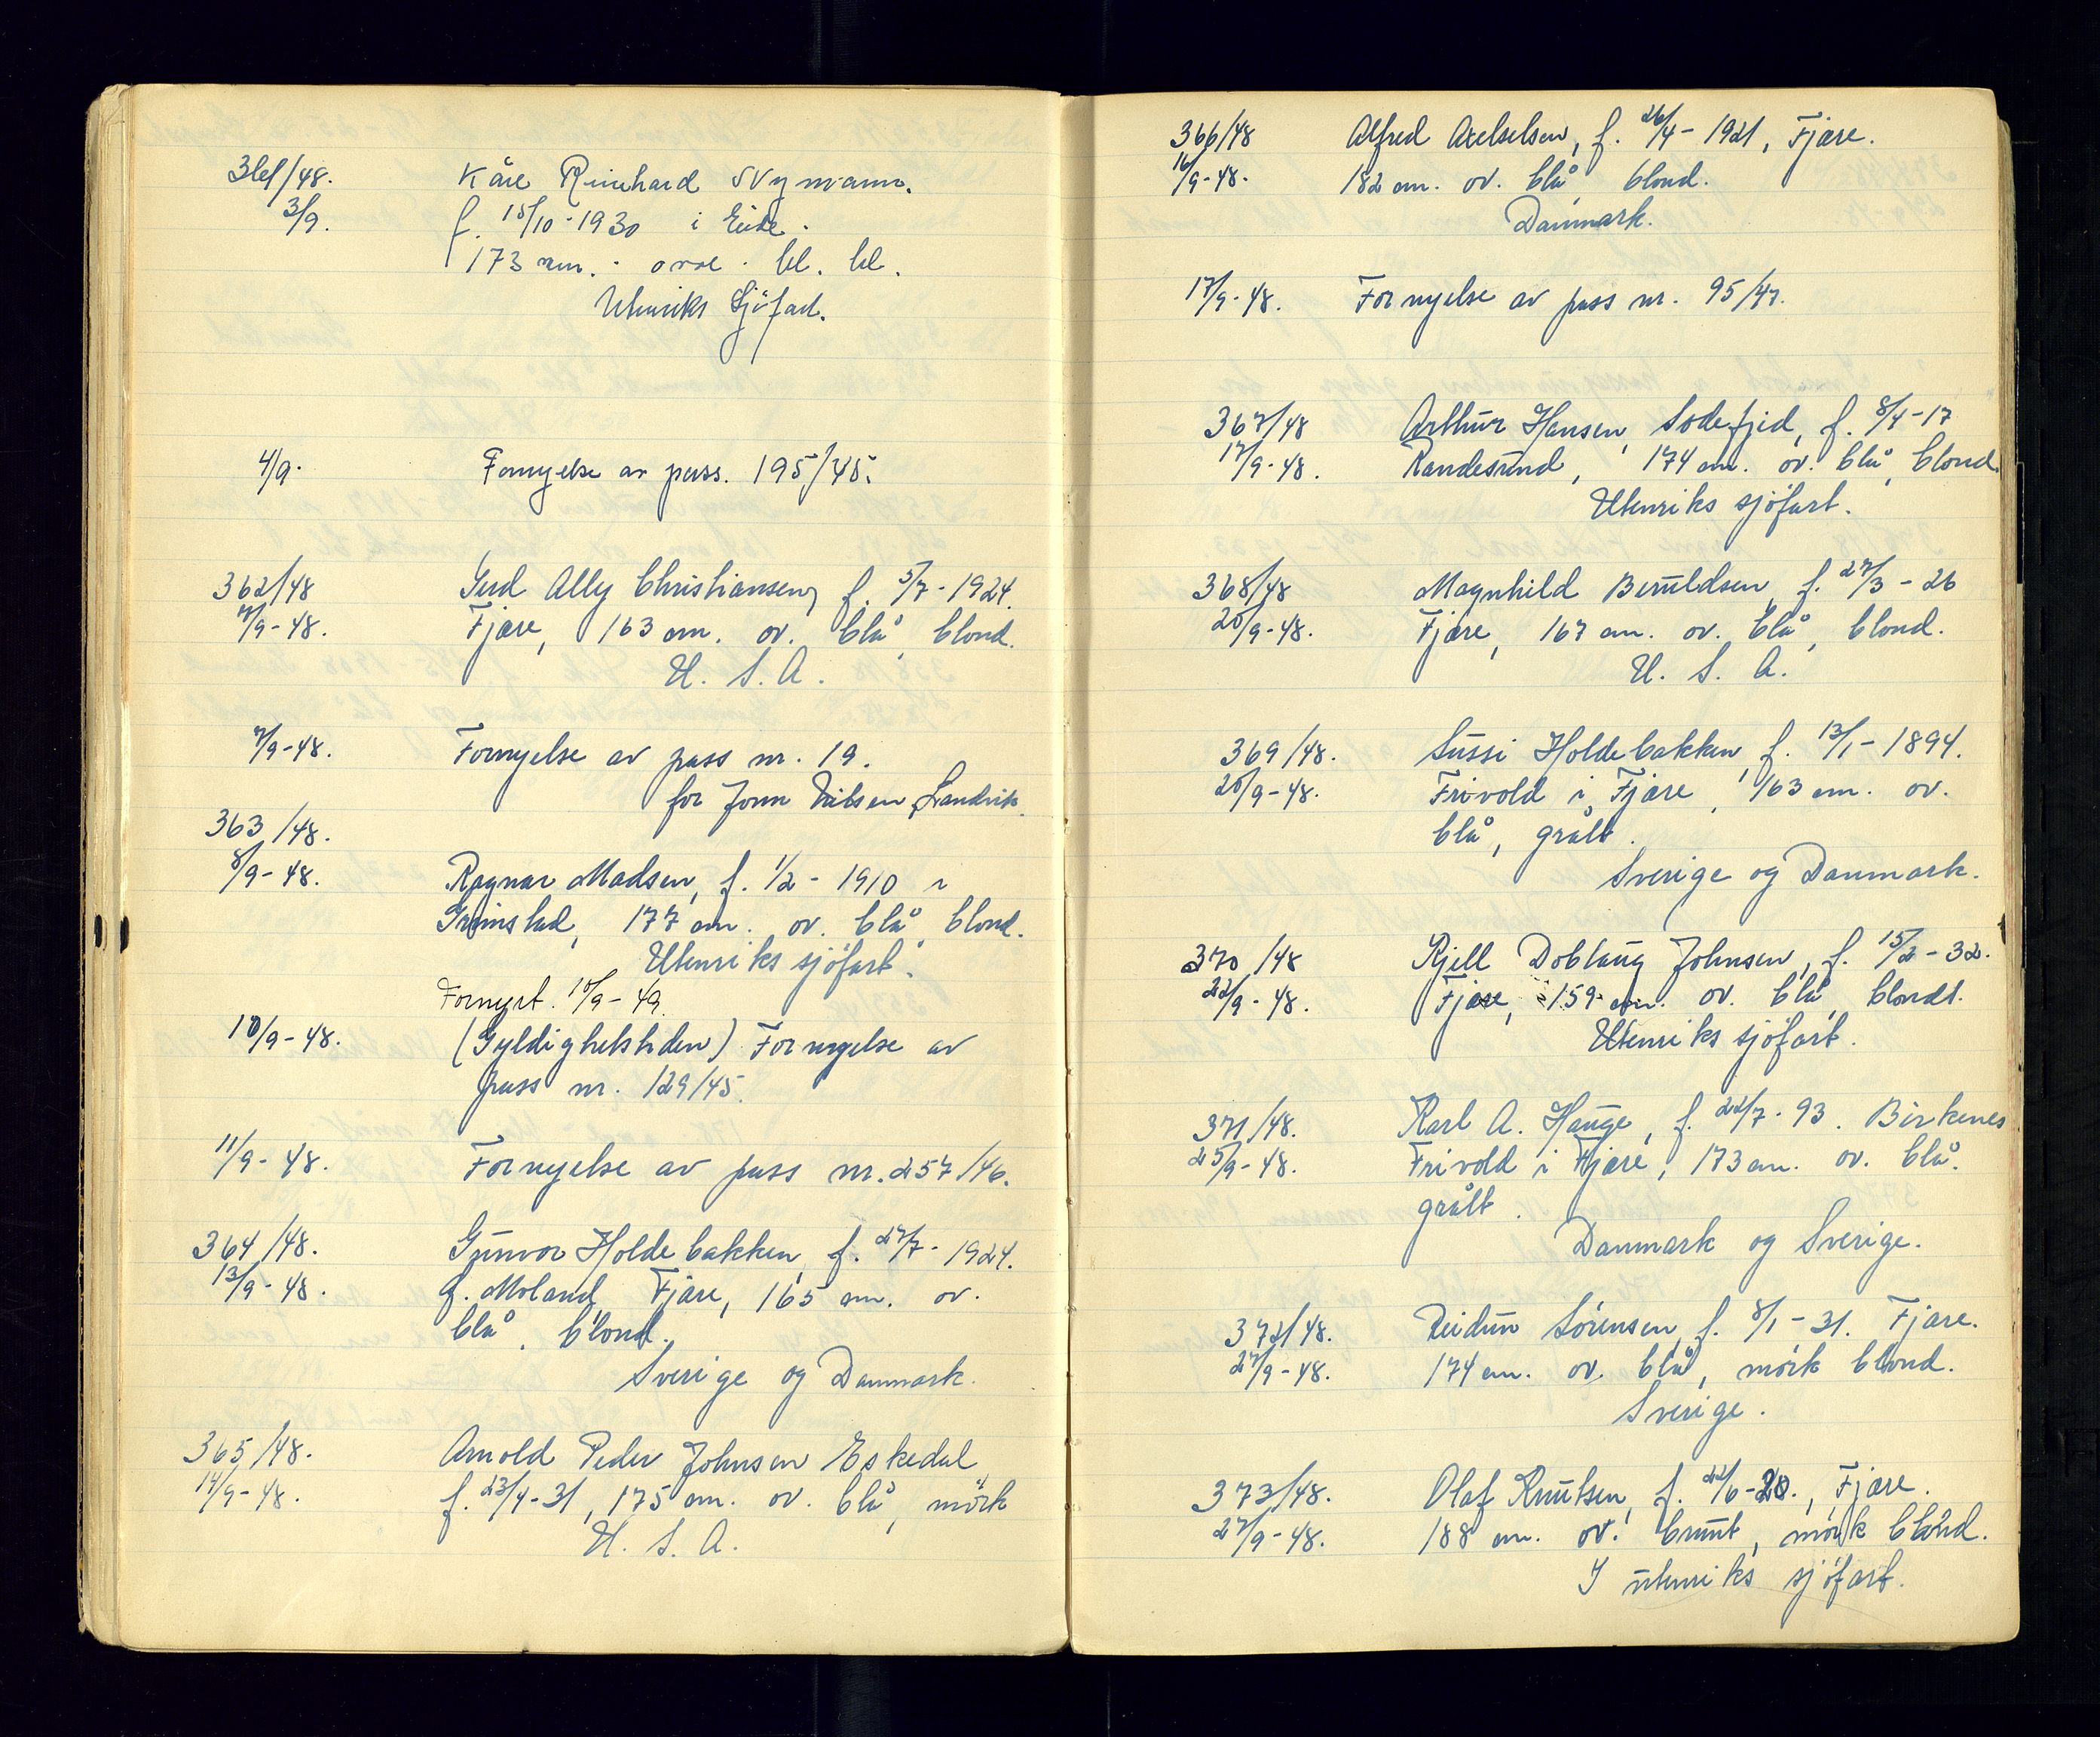 361/48. Kåre Reinhard Nymann.
3/9. f. 15/10-1930 i Eide.
173 cm. ov. bl. bl.
Utenriks Sjöfart.
4/9. Fornyelse av pass. 195/45.
362/48 Gerd Ally Christiansen, f. 5/7-1924.
7/9-48. Fjære, 163 cm. ov. blå, blond.
U. S. A.
7/9-48. Fornyelse av pass nr. 19.
for Jorun Nilsen, Landvik.
363/48.
8/9-48. Ragnar Madsen, f. 1/2-1910 i
Grimstad, 177 cm. ov. blå, blond.
Utenriks sjöfart.
Fornyet. 10/9-49.
10/9-48. (Gyldighetstiden) Fornyelse av
pass nr. 129/45.
11/9-48. Fornyelse av pass nr. 257/46.
364/48. Gunvor Holdebakken, f. 27/7-1924.
13/9-48. f. Moland, Fjære, 165 cm. ov.
blå, blond.
Sverige og Danmark.
365/48. Arnold Peder Johnsen Eskedal
14/9-48. f. 23/4-31, 175 cm. ov. blå, mörk
U. S. A.
366/48 Alfred Axelselsen, f. 26/4-1921, Fjære.
16/9-48. 182 cm. ov. blå, blond.
Danmark.
17/9-48. Fornyelse av pass nr. 95/47.
367/48 Arthur Hansen, Sodefjed, f. 8/4-17
17/9-48. Randesund, 174 cm. ov. blå, blond.
Utenriks sjöfart.
368/48 Magnhild Beruldsen, f. 27/3-26
20/9-48. Fjære, 167 cm. ov. blå, blond.
U. S. A.
369/48. Sussi Holdebakken, f. 13/1-1894.
20/9-48. Frivold i Fjære, 163 cm. ov.
blå, grått.
Sverige og Danmark.
370/48 Kjell Doblaug Johnsen, f. 15/2-32.
22/9-48. Fjære, 159 cm. ov. blå, blondt.
Utenriks sjöfart.
371/48. Karl A. Hauge, f. 22/7-93. Birkenes
25/9-48. Frivold i Fjære, 173 cm. ov. blå.
grått.
Danmark og Sverige.
372/48. Reidun Sörensen, f. 8/1-31. Fjære.
27/9-48. 174 cm. ov. blå, mörk blond.
Sverige.
373/48. Olaf Knutsen, f. 22/6-20., Fjære.
27/9-48. 188 cm. ov. brunt, mörk blond.
I utenriks sjöfart.